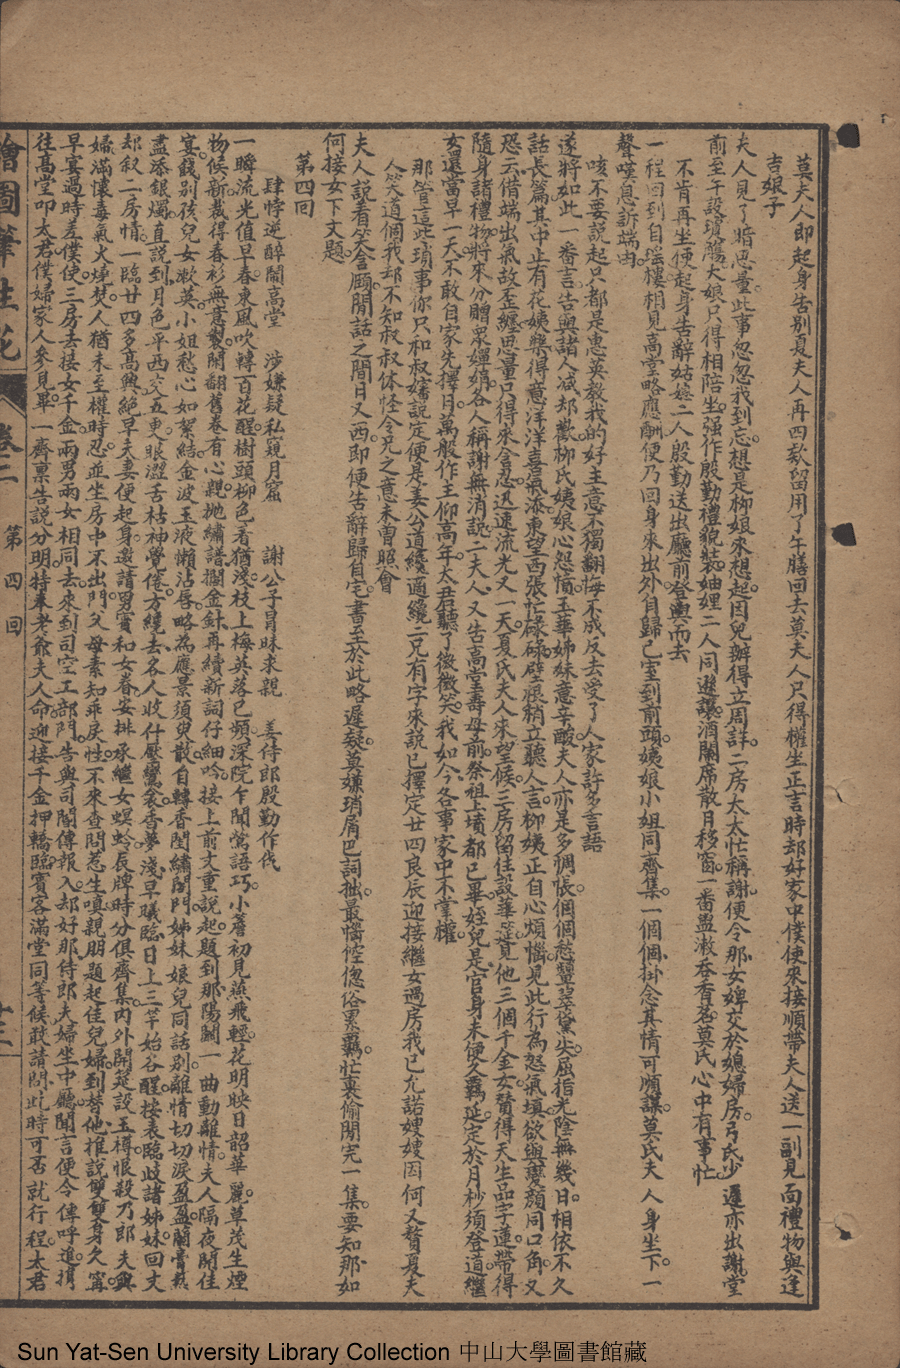 莫夫人即起身告別夏夫人再四款留用了午膳回去莫夫人只得權坐正言時却好家中僕使來接順帶夫人送一副見面禮物與逢
吉娘子
夫人見了暗思量。此事忽忽我到忘。想是柳娘來想起。因兒辦得立周詳。二房大太忙稱謝。便令那女婢交於媳婦房。弓氏少遲亦出謝。堂
前至午設瓊觴。大娘只得相陪坐。強作殷勤禮貌裝。妯娌二人同遜讓。酒闌席散月移窗。一番盥漱吞香茗。莫氏心中有事忙。
不肯再坐便起身告辭姑嫜二人殷勤送出廳前登輿而去
一程回到自瑤樓。相見高堂略應酬。便乃回身來出外。自歸己室到前頭。姨娘小姐同齊集。一個個掛念其情可順謀。莫氏夫人身坐下。一
聲嘆息訴端由。
咳不要說起只都是惠英教我的好主意不獨翻悔不成反去受了人家許多言語
遂將如此一番言。告與諸人減却歡。柳氏姨娘心怨憤。玉華姊妹意辛酸。夫人亦是多惆悵。個個愁顰翠黛尖。屈指光陰無幾日。相依不久
話長篇。其中止有花姨槳。得意洋洋喜氣添。東望西張忙碌碌。壁痕稍立聽人言。柳姨正自心煩惱。見此行為怒氣填。欲與變顏同口角。又
恐云借端出氣故歪纏。思量只得來含忍。迅速流光又一天。夏氏夫人來望候。二房留住設華筵。見他三個千金女。贊得天生品字蓮。帶得
隨身諸禮物。將來分贈眾嬋娟。各人稱謝無消說。二夫人又告高堂壽母前。祭祖上墳都已畢。姪兒是官身未便久羈延。定於月杪須登道。繼
女還當早一天。不敢自家先擇月。萬般作主仰高年。太君聽了微微笑。我如今各事家中不掌權。
那管這些瑣事你只和叔嬸說定便是姜公道纔適纔二兄有字來說已擇定廿四良辰迎接繼女過房我已允諾嫂嫂因何又贅夏夫
人笑道個我却不知叔叔休怪令兄之意未曾照會
夫人說着笑含頤。閒話之間日又西。即便告辭歸自宅。書至於此略遲疑。豈嫌瑣屑巴詞拙。最惱倥傯俗累羈。忙裏偷閒完一集。要知那如
何接女下文題。
第四回
肆悖逆醉鬧高堂　涉嫌疑私窺月窟　謝公子冒昧求親　姜侍郎殷勤作伐
一瞬流光值早春。東風吹轉百花醒。樹頭柳色看猶淺。枝上梅英落已頻。深院乍聞鶯語巧。小蒼初見燕飛輕。花明映日韶華麗。草茂生煙
物候新。裁得春衫無意製。閒翻舊卷有心親。拋繡譜擱金針。再續新詞仔細吟。接上前文重說起。題到那陽關一曲動離情。夫人隔夜開佳
宴。餞別孩兒女漱英。小姐愁心如絮結。金波玉液懶沾唇。略為應景須臾散。自轉香閨繡閣門。姊妹娘兒同話別。離情切切淚盈盈。蘭膏熬
盡添銀燭。直說到月色平西交五更。眼澀舌枯神覺倦。方繞去各人收什壓鸞衾。香夢淺早曦臨。日上三竿始各醒。按表臨歧諸姊妹。回文
却叙二房情。一臨廿四多高興。絕早夫妻便起身。邀請男賓和女眷。安排承繼女螟蛉。辰牌時分俱齊集。內外開筵設玉樽。恨殺乃郎夫與
婦。滿懷毒氣火燒焚。人猶未至權時忍。並坐房中不出門。父母素知乖戾性。不來查問惹生嗔。親朋題起佳兒婦。到替他推說雙雙身久寗
早宴過時差僕使。三房去接女千金。兩男兩女相同去。來到司空工部門。告與司閽傳報入。却好那侍郎夫婦坐中廳。聞言便令傳呼進。揖
往高堂叩太君。僕婦家人參見畢。一齊禀告說分明。特奉老爺夫人命。迎接千金押轎臨。賓客滿堂同等候。敢請問此時可否就行程。太君
繪圖筆生花　卷二　第四回　十三
Sun Yat-Sen University Library Collection 中山大學圖書館藏